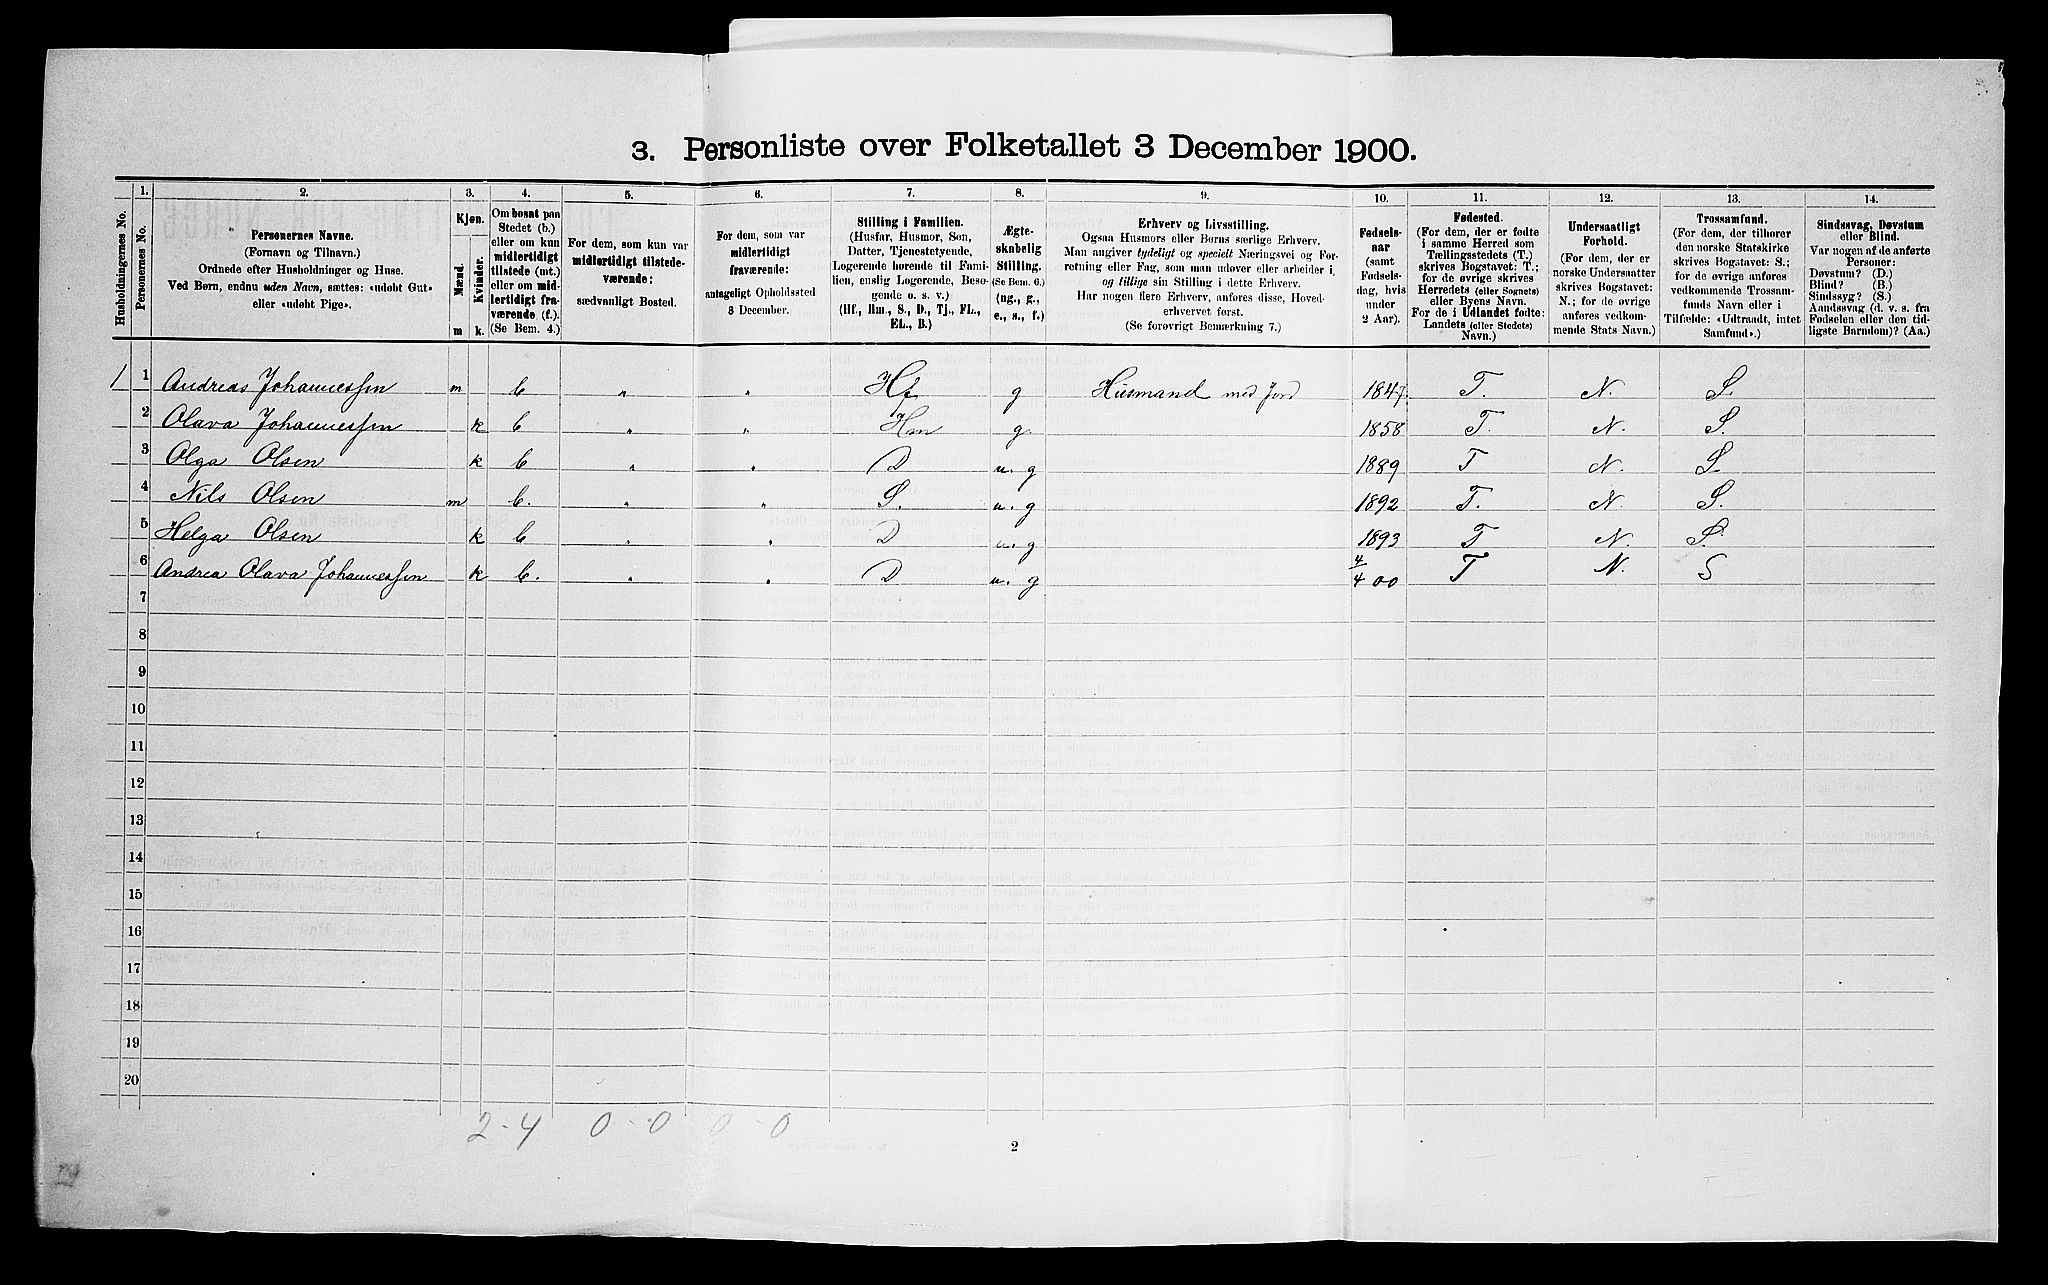 3. Personliste over Folketallet 3 December 1900.
Husholdningernes No.
1.
Personernes No.
2.
Personernes Navne.
(Fornavn og Tilnavn.)
Ordnede efter Husholdninger og Huse.
Ved Børn, endnu uden Navn, sættes: «udøbt Gut»
eller «udøbt Pige».
3.
Kjøn.
Mænd.
Kvinder.
m k.
4.
Om bosat paa
Stedet (b.)
eller om kun
midlertidigt
tilstede (mt.)
eller om mid-
lertidigt fra-
værende (f.).
(Se Bem. 4.)
5.
For dem, som kun var
midlertidigt tilstede-
værende:
sædvanligt Bosted.
6.
For dem, som var
midlertidigt
fraværende:
antageligt Opholdssted
3 December.
7.
Stilling i Familien.
(Husfar, Husmor, Søn,
Datter, Tjenestetyende,
Logerende hørende til Fami-
lien, enslig Logerende, Besø-
gende o. s. v.)
(Hf., Hm., S., D., Tj., FL.,
EL., B.)
8.
Ægte-
skabelig
Stilling.
(Se Bem. 6.)
(ug., g.,
e., s., f.)
9.
Erhverv og Livsstilling.
Ogsaa Husmors eller Børns særlige Erhverv.
Man angiver tydeligt og specielt Næringsvei og For-
retning eller Fag, som man udøver eller arbeider i,
og tillige sin Stilling i dette Erhverv.
Har nogen flere Erhverv, anføres disse, Hoved-
erhvervet først.
(Se forøvrigt Bemærkning 7.)
10.
Fødsels-
aar
(samt
Fødsels-
dag, hvis
under
2 Aar).
11.
Fødested.
(For dem, der er fødte
i samme Herred som
Tællingsstedets (T.)
skrives Bogstavet: T.;
for de øvrige skrives
Herredets (eller Sognets)
eller Byens Navn.
For de i Udlandet fødte:
Landets (eller Stedets)
Navn.)
12.
Undersaatligt
Forhold.
(For dem, der er
norske Undersaatter
skrives Bogstavet:
N.; for de øvrige
anføres vedkom-
mende Stats Navn.)
13.
Trossamfund.
(For dem, der tilhører
den norske Statskirke
skrives Bogstavet: S.;
for de øvrige anføres
vedkommende Trossam-
funds Navn eller i
Tilfælde: «Udtraadt, intet
Samfund».)
14.
Sindssvag, Døvstum
eller Blind.
Var nogen af de anførte
Personer:
Døvstum? (D.)
Blind? (B.)
Sindssyg? (S.)
Aandssvag (d. v. s. fra
Fødselen eller den tid-
ligste Barndom)? (Aa.)
1 1 Andreas Johannessen m b " " Hf g Husmand med Jord 1847 T. N. S.
2 Olava Johannessen k b " " Hm g. 1858 T. N. S.
3 Olga Olsen k b " " D u. g 1889 T N. S.
4 Nils Olsen m b. " " S. u. g 1892 T. N. S.
5 Helga Olsen k b " " D u. g 1893 T N. S.
6 Andrea Olava Johannessen k b. " " D u. g 4/4 00 T N. S
7
8
9
10
11
12
13
14
15
16
17
18
19
20
2-4 0-0 0-0
2